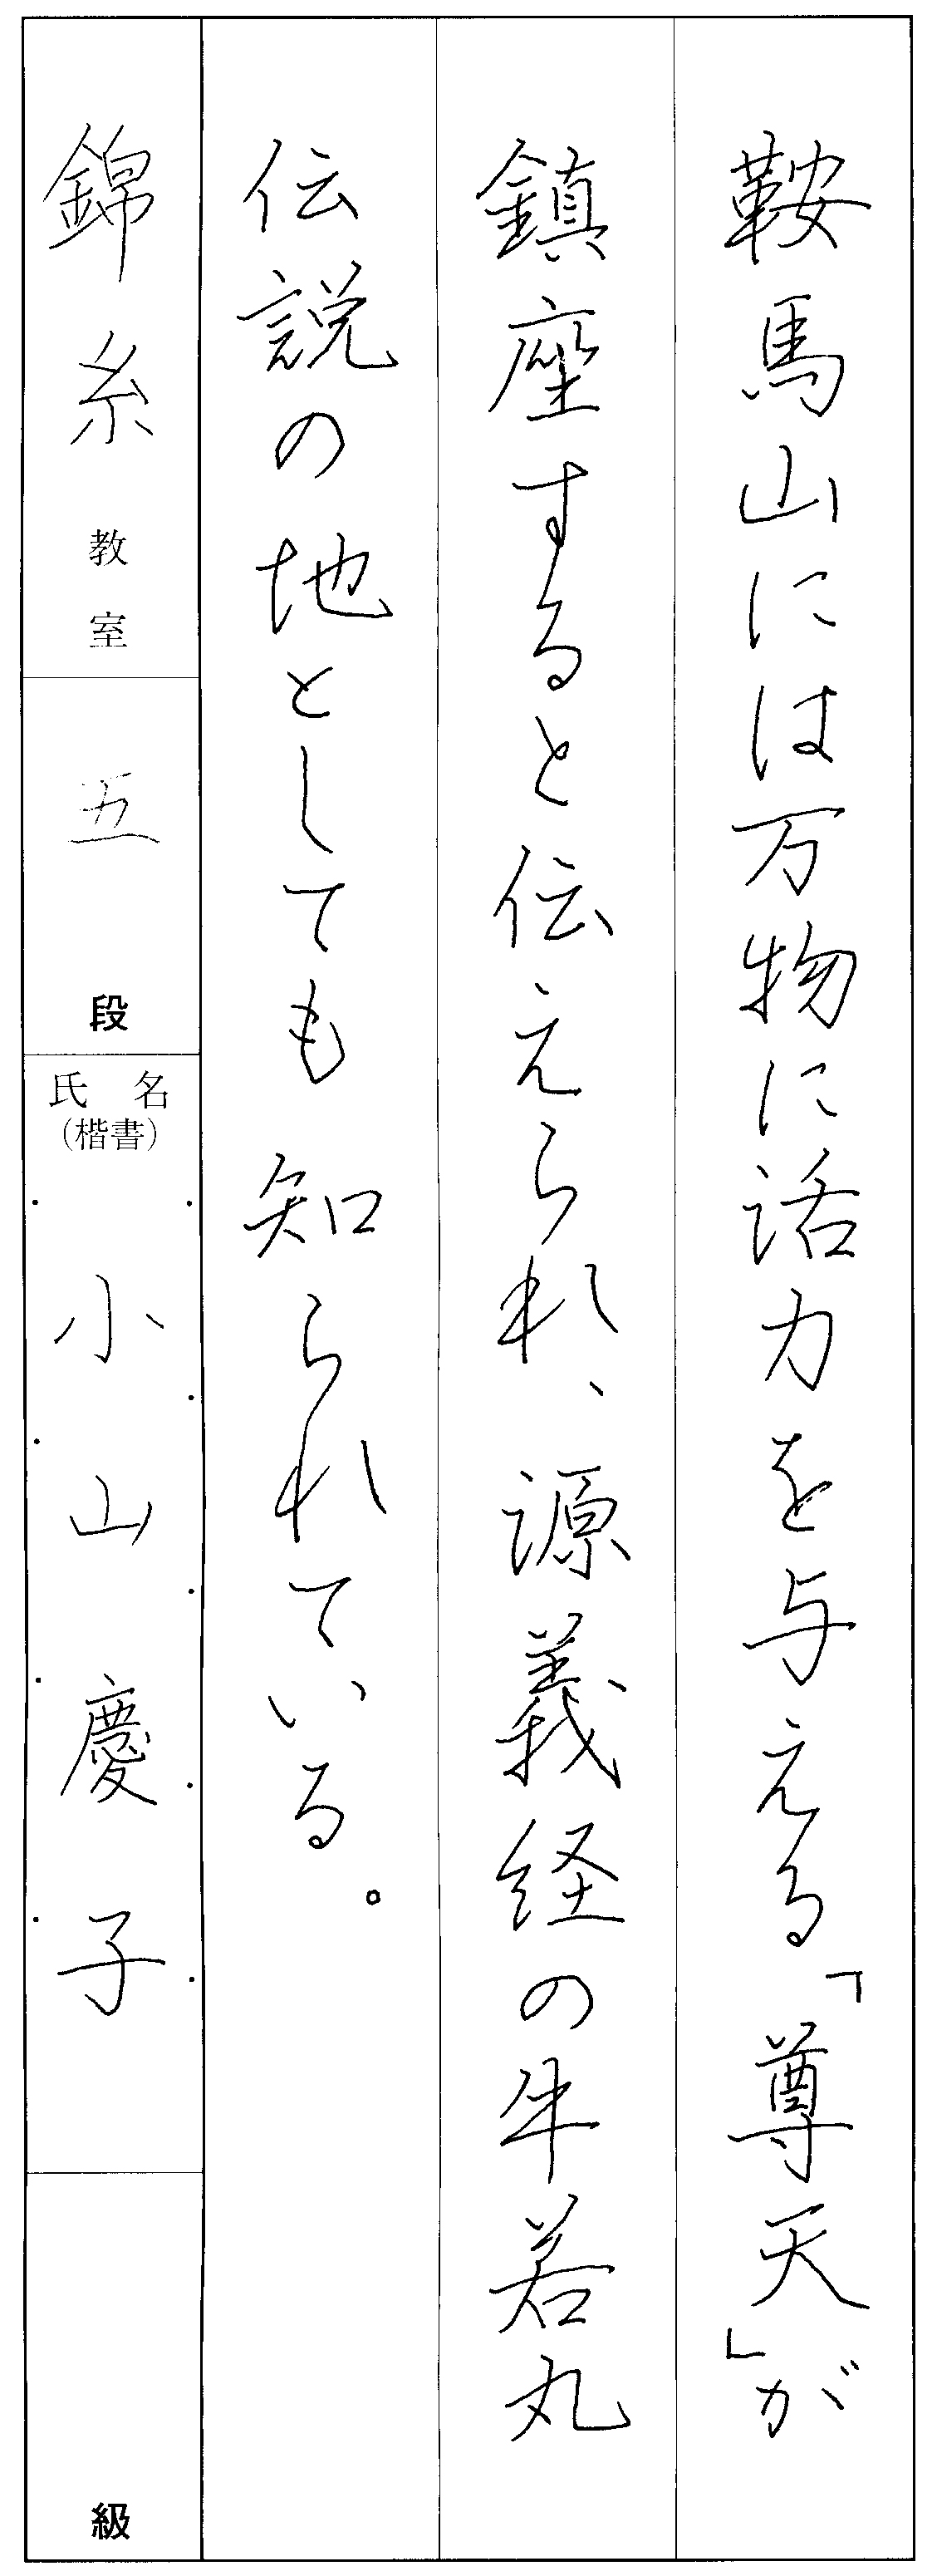 鞍馬山には万物に活力を与える「尊天」が
鎮座すると伝えられ、源義経の牛若丸
伝説の地としても知られている。
錦糸教室
五段
氏名
(楷書)
小山慶子
級